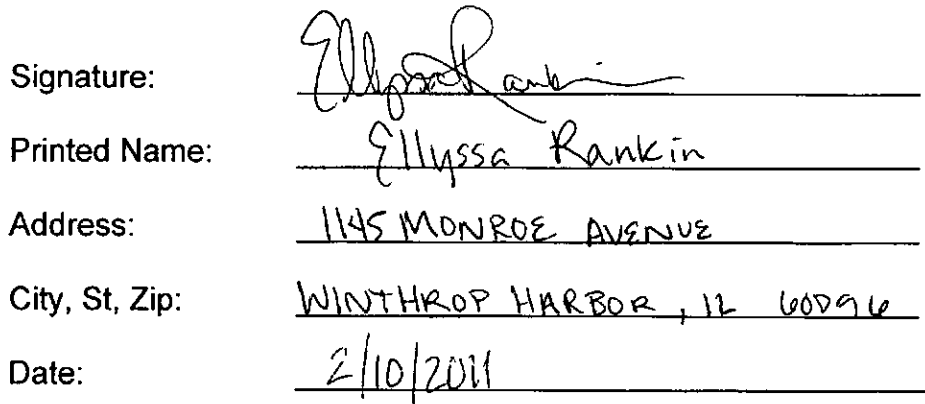 Signature: Ellyssa Rankin
Printed Name: Ellyssa Rankin
Address: 1145 MONROE AVENUE
City, St, Zip: WINTHROP HARBOR, IL 60096
Date: 2/10/2011